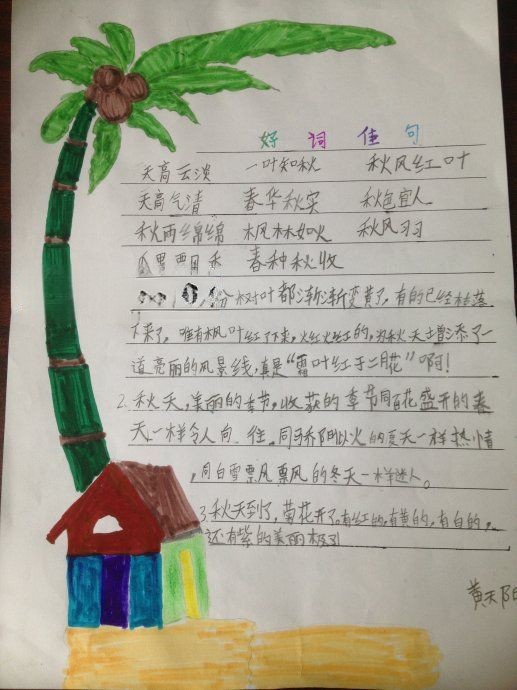 好 词 佳 句
天高云淡 一叶知秋 秋风红叶
天高气清 春华秋实 秋色宜人
秋雨绵绵 枫林如火 秋风习习
春种秋收
树叶都渐渐变黄了,有的已经枯落
下来了,唯有枫叶红下来,火红火红的,为秋天增添了一
道亮丽的风景线,真是“霜叶红于二月花”啊!
2. 秋天,美丽的季节,收获的季节同百花盛开的春
天一样令人向往。同骄阳似火的夏天一样热情
,同白雪飘飘的冬天一样迷人。
3. 秋天到了,菊花开了。有红的,有黄的,有白的,
还有紫的美丽极了
黄天阳